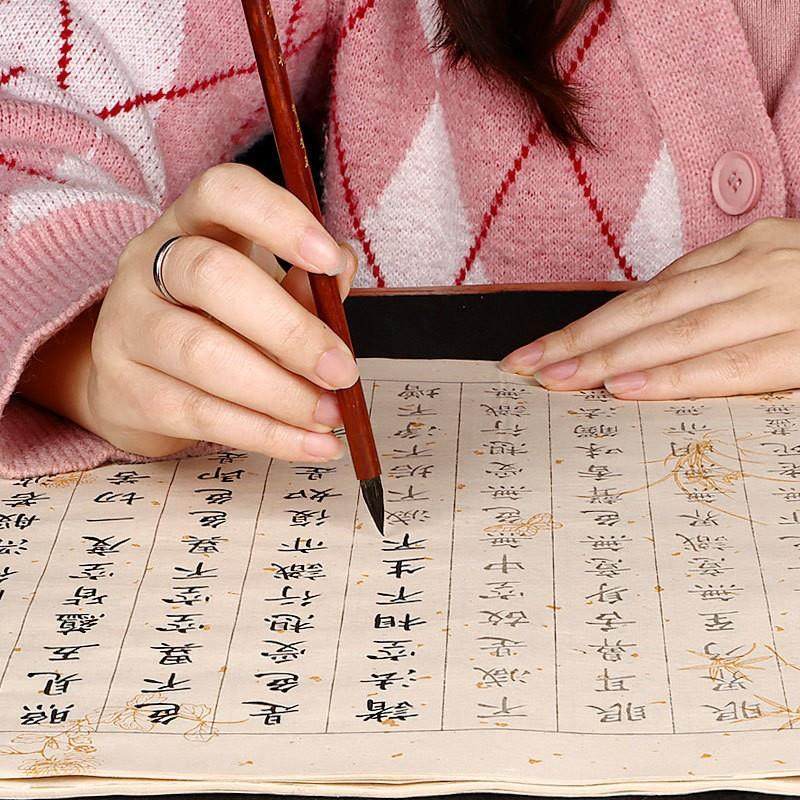 深般若
照見五蘊皆空度一切苦
色不異空空不異色色即
是色受想行識亦復如是
諸法空相不生不滅不垢不淨不增
不減是故空中無色無受想行識無
眼耳鼻舌身意無色聲香味觸法
眼界乃至無意識界無無明亦無